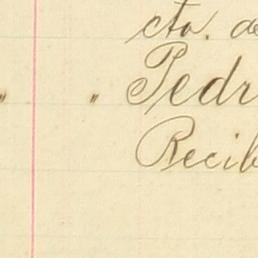 cto. de
" " Pedr
Recib